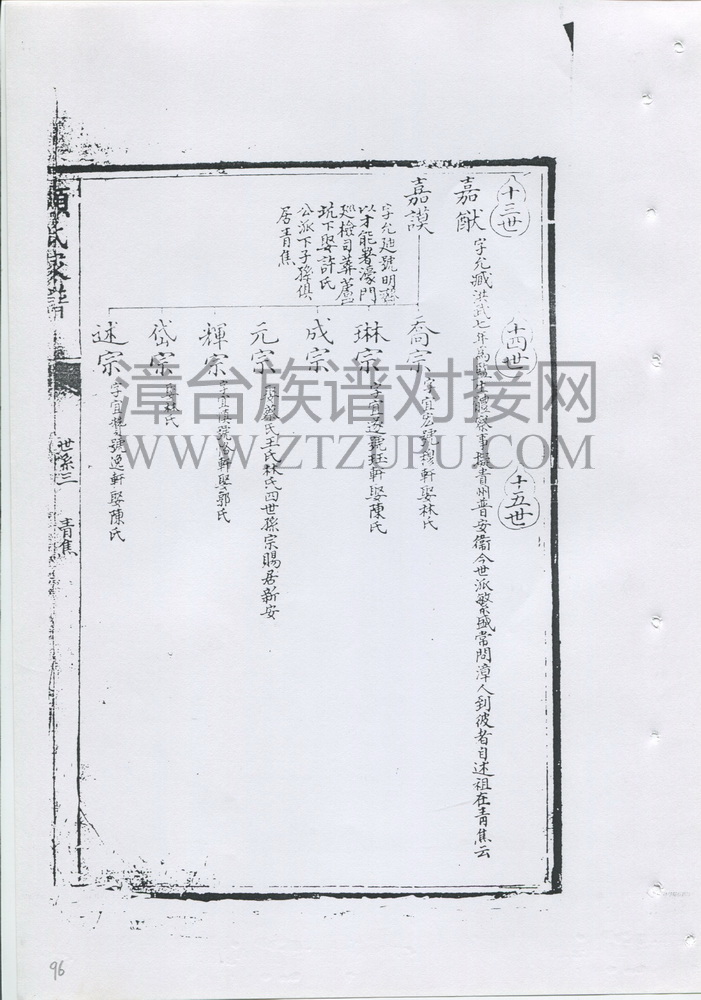 十三世
十四世
十五世
嘉猷
字允臧洪武七年為醫生體察事撥貴州普安衛今世派繁盛常問漳人到彼者自述祖在青焦云
嘉謨
字允迪號明
以才能署濠門
廵檢司葬蘆
坑下娶許氏
公派下子孫俱
居青焦
喬宗
字宜宏號穆軒娶林氏
琳宗
字宜 號玨軒娶陳氏
成宗
元宗
娶蔡氏王氏林氏四世孫宗賜居新安
輝宗
字宜 號 軒娶郭氏
岱宗
娶林氏
述宗
字宜 號逸軒娶陳氏
顏氏家譜
世系三
青焦
漳台族谱对接网
WWW.ZTZUPU.COM
96